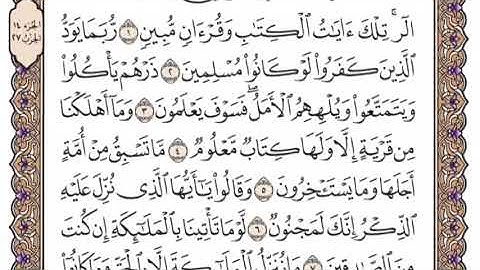 الجزء ١٤
الحزب ٢٧
الٓرۚ تِلۡكَ ءَايَٰتُ ٱلۡكِتَٰبِ وَقُرۡءَانٖ مُّبِينٖ ١ رُّبَمَا يَوَدُّ
ٱلَّذِينَ كَفَرُواْ لَوۡ كَانُواْ مُسۡلِمِينَ ٢ ذَرۡهُمۡ يَأۡكُلُواْ
وَيَتَمَتَّعُواْ وَيُلۡهِهِمُ ٱلۡأَمَلُۖ فَسَوۡفَ يَعۡلَمُونَ ٣ وَمَآ أَهۡلَكۡنَا
مِن قَرۡيَةٍ إِلَّا وَلَهَا كِتَابٞ مَّعۡلُومٞ ٤ مَّا تَسۡبِقُ مِنۡ أُمَّةٍ
أَجَلَهَا وَمَا يَسۡتَـٔۡخِرُونَ ٥ وَقَالُواْ يَٰٓأَيُّهَا ٱلَّذِي نُزِّلَ عَلَيۡهِ
ٱلذِّكۡرُ إِنَّكَ لَمَجۡنُونٞ ٦ لَّوۡمَا تَأۡتِينَا بِٱلۡمَلَٰٓئِكَةِ إِن كُنتَ
مِنَ ٱلصَّٰدِقِينَ ٧ مَا نُنَزِّلُ ٱلۡمَلَٰٓئِكَةَ إِلَّا بِٱلۡحَقِّ وَمَا كَانُوٓاْ